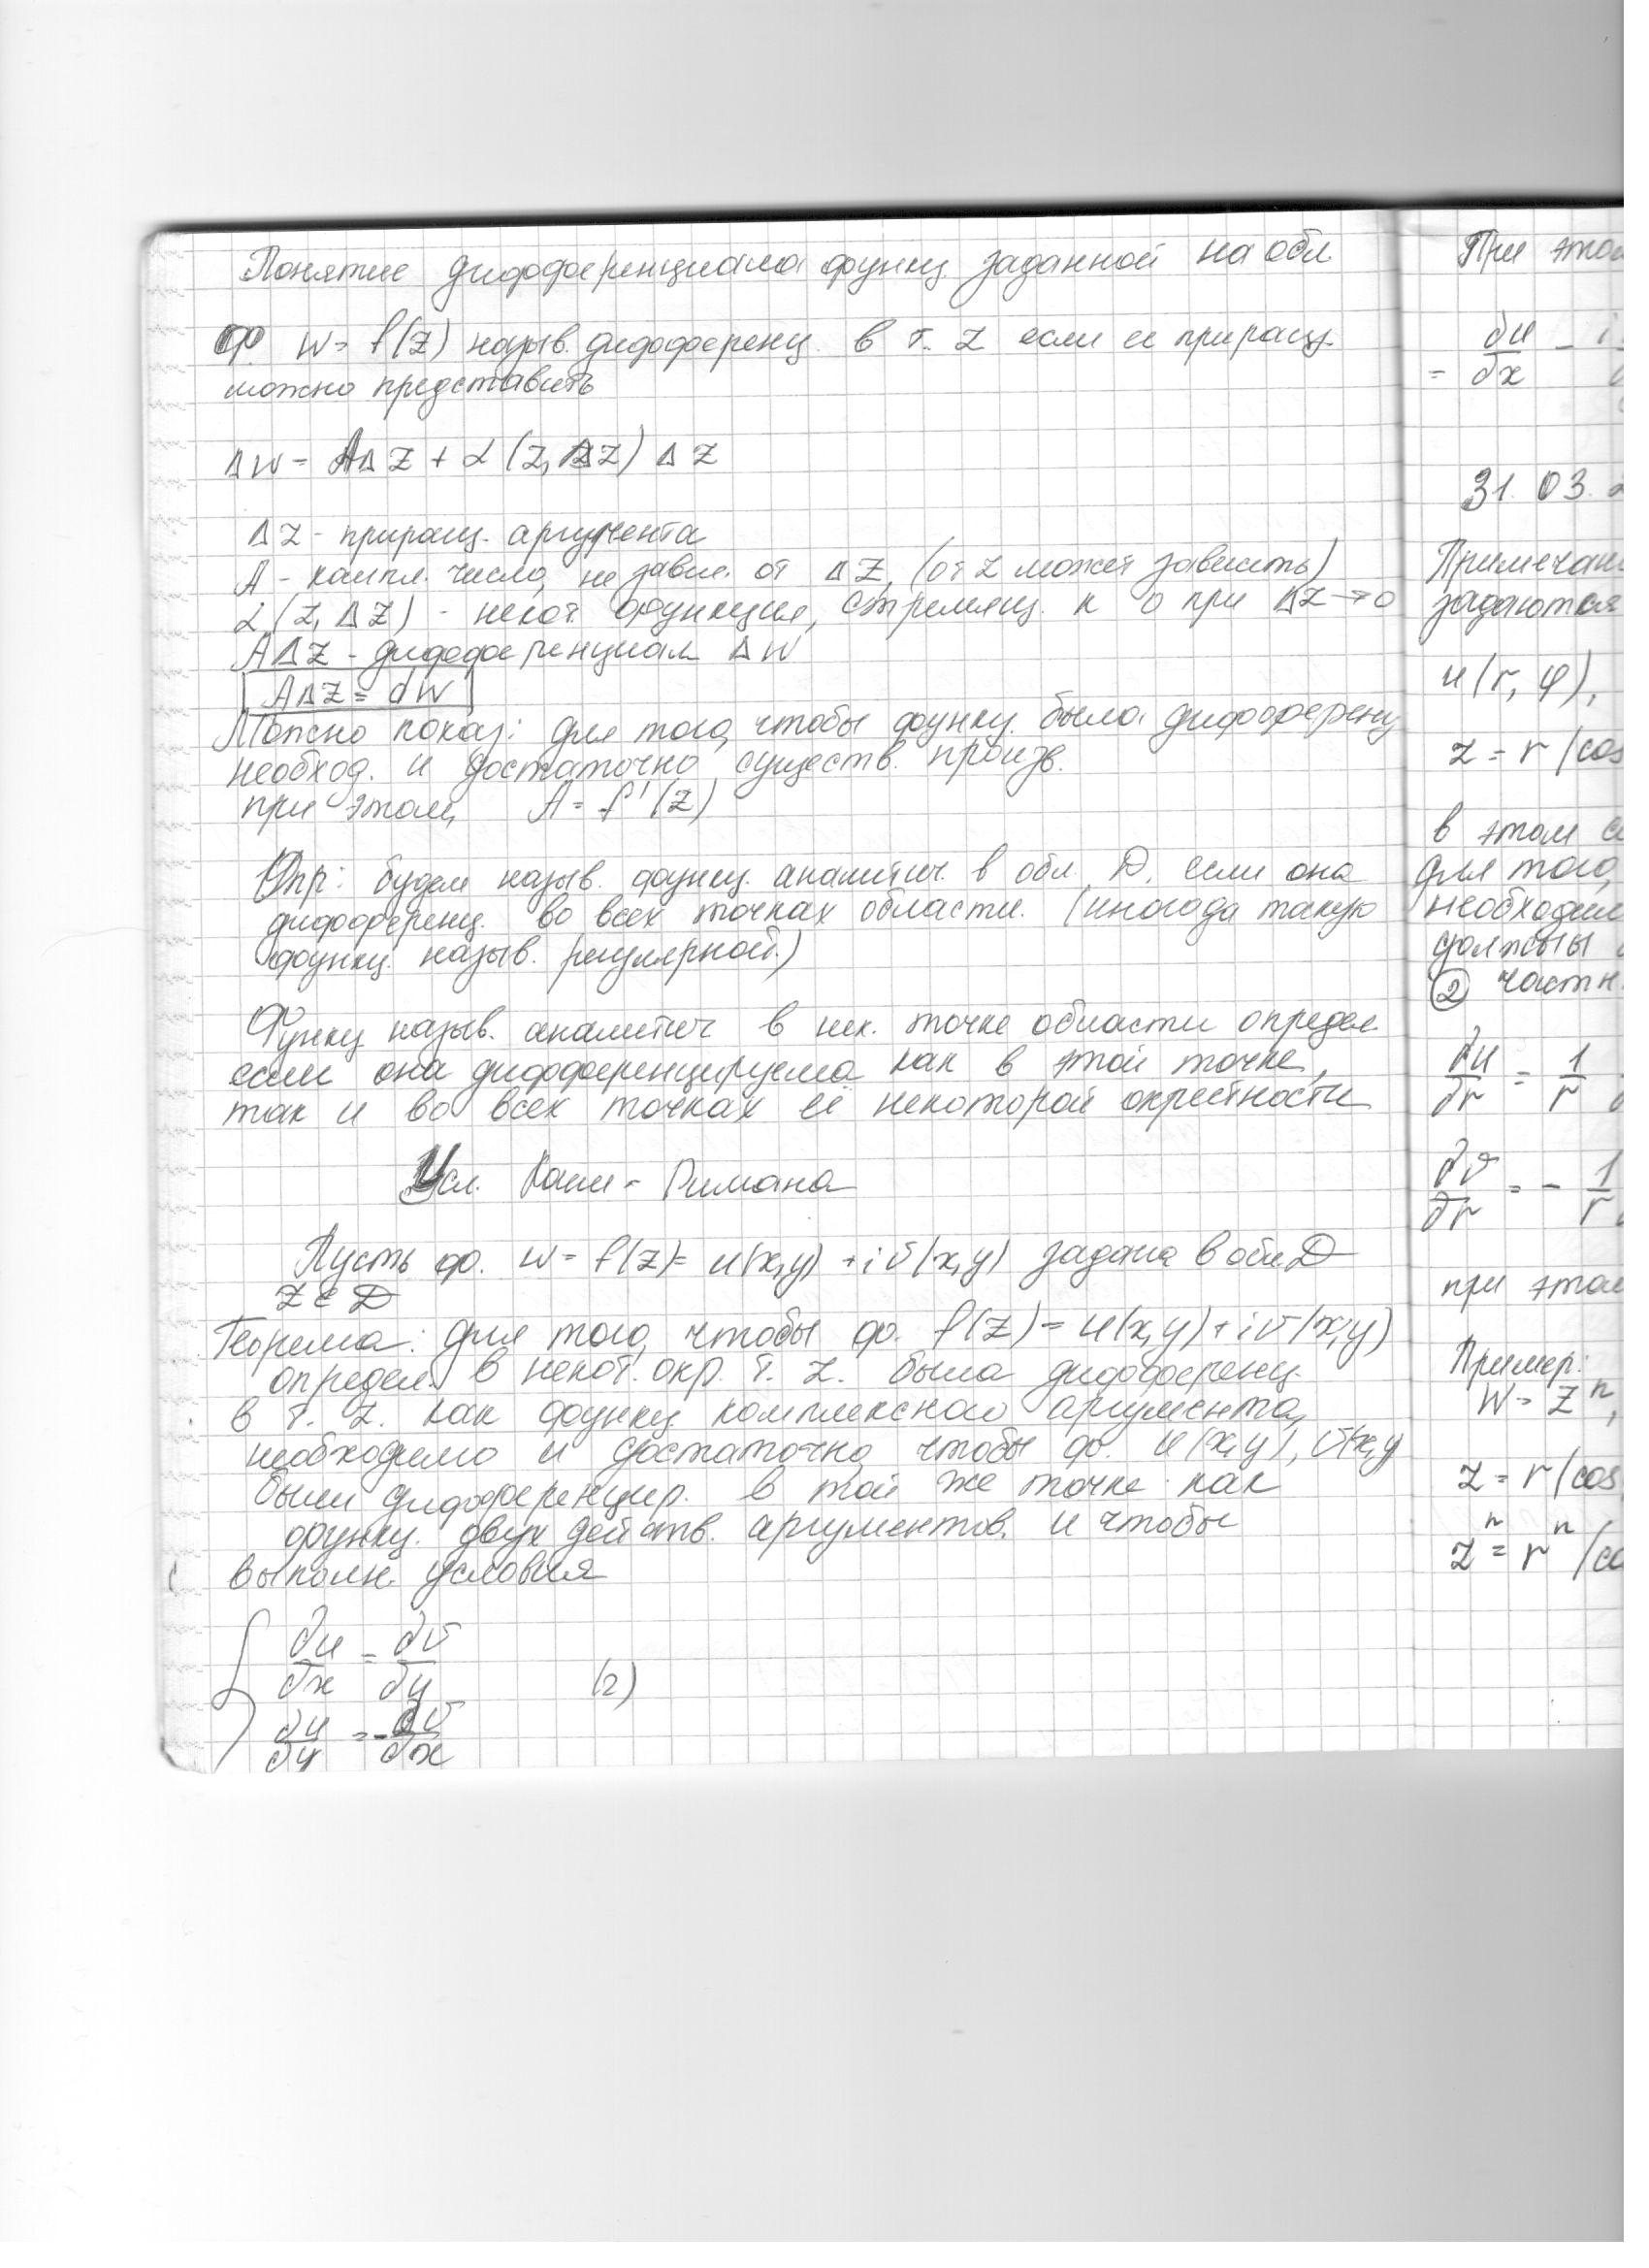 Понятие дифференциала функц. заданной на обл.
Ф. w = f(z) назыв. дифференц. в т. z если ее приращ.
можно представить
Δw = AΔz + α(z, Δz) Δz
Δz - приращ. аргумента
A - компл. число, не завис. от Δz, (от z может зависить)
α(z, Δz) - некот. функция, стремящ. к 0 при Δz → 0
AΔz - дифференциал Δw
AΔz = dw
Можно показ: для того, чтобы функц. была дифференц
необход. и достаточно существ. произв.
при этом, A = f'(z)
Опр: будем назыв. функц. аналитич. в обл. D, если она
дифференц. во всех точках области. (иногда такую
функц. назыв. регулярной.)
Функц назыв. аналитич в нек. точке области определ.
если она дифференцируема как в этой точке,
так и во всех точках её некоторой окрестности
Усл. Коши - Римана
Пусть ф. w = f(z) = u(x,y) + iv(x,y) задана в обл. D
z ∈ D
Теорема: для того, чтобы ф. f(z) = u(x,y) + iv(x,y)
определ. в некот. окр. т. z. была дифференц.
в т. z. как функц комплексного аргумента,
необходимо и достаточно чтобы ф. u(x,y), v(x,y
были дифференцир. в той же точке как
функц. двух действ. аргументов. и чтобы
выполн. условия
∂u/∂x = ∂v/∂y
(2)
∂u/∂y = -∂v/∂x
При этом
= ∂u/∂x - i
31. 03.
Примечан
задаются
u(r, φ),
z = r(cos
в этом с
для того,
необходим
должны
② частн.
∂u/∂r = 1/r
∂v/∂r = - 1/r
при этом
Пример:
w = zⁿ,
z = r(cos
zⁿ = rⁿ(co